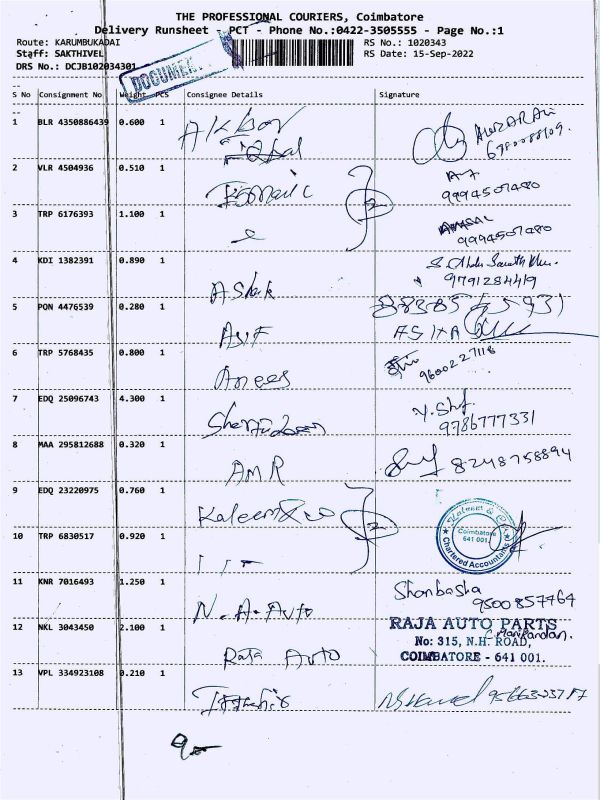 THE PROFESSIONAL COURIERS, Coimbatore
Delivery Runsheet - PCT - Phone No.:0422-3505555 - Page No.:1
Route: KARUMBUKADAI RS No.: 1020343
Staff: SAKTHIVEL RS Date: 15-Sep-2022
DRS No.: DCJB102034301
S No Consignment No Weight PCS Consignee Details Signature
1 BLR 4350886439 0.600 1 Akbar
2 VLR 4504936 0.510 1 Ismail C
9994507480
3 TRP 6176393 1.100 1
9994507480
4 KDI 1382391 0.890 1 AShak
9791284419
5 PON 4476539 0.280 1 Asif
6 TRP 5768435 0.800 1 Anees 9600227118
7 EDQ 25096743 4.300 1
9786777331
8 MAA 295812688 0.320 1 AMR 8248758894
9 EDQ 23220975 0.760 1 Kaleem & co
Kaleem & Co
Coimbatore
641 001.
Chartered Accountants
10 TRP 6830517 0.920 1
11 KNR 7016493 1.250 1 N.A.Auto Shanbasha
9500857464
12 NKL 3043450 2.100 1 Raja Auto
RAJA AUTO PARTS
No: 315, N.H. ROAD,
COIMBATORE - 641 001.
13 VPL 334923108 0.210 1